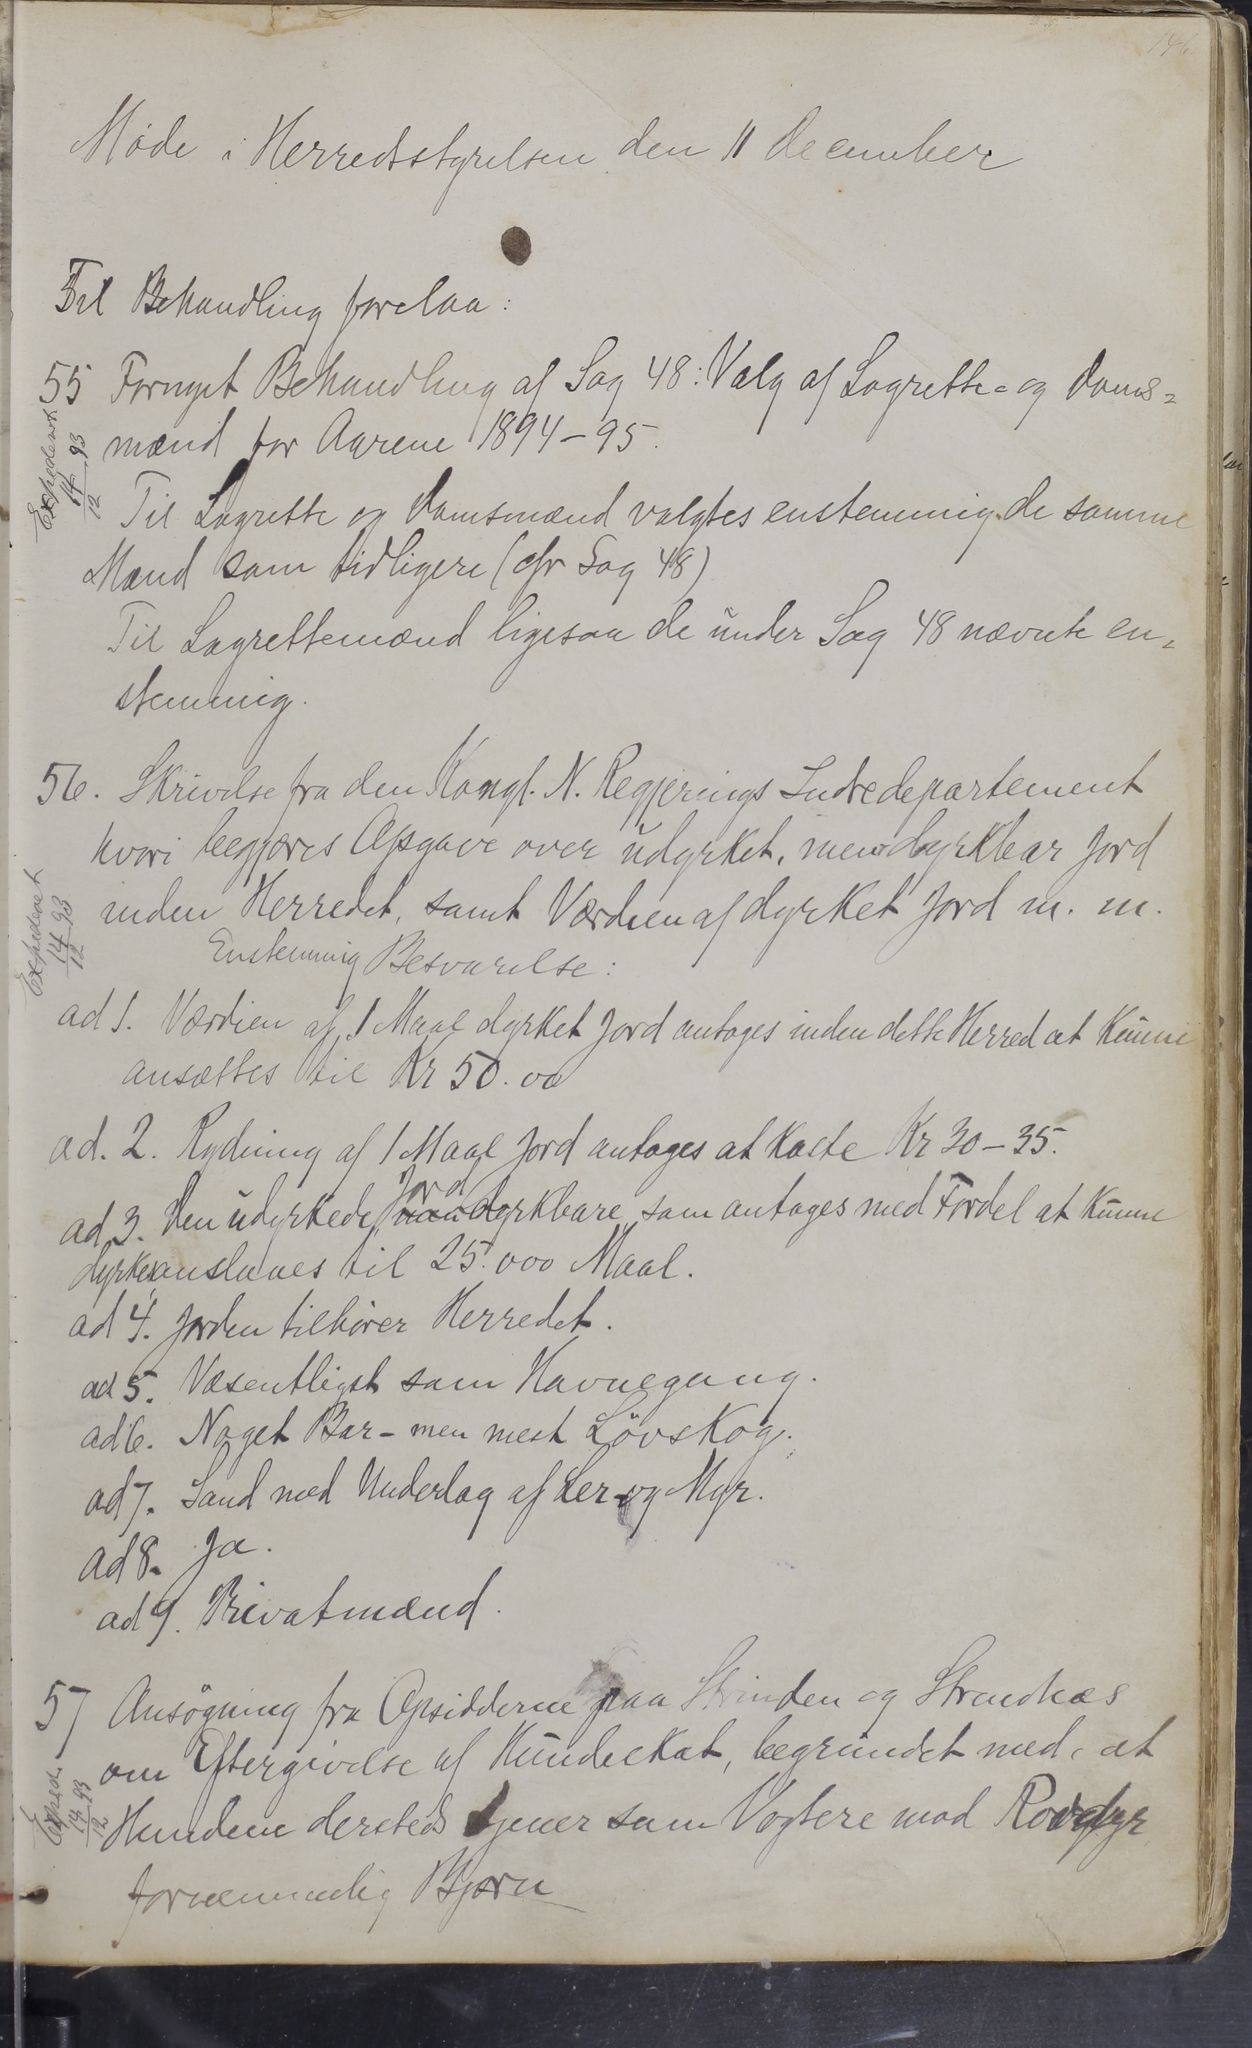 146
Møde i Herredsstyrelsen den 11 December
Til Behandling forelaa:
55 Fornyet Behandling af Sag 48: Valg af Lagrette- og Doms-
mænd for Aarene 1894-95.
Expederet 14/12 93
Til Lagrette og Domsmænd valgtes enstemmig de samme
Mænd som tidligere (cfr Sag 48)
Til Lagrettemænd ligesaa de under Sag 48 nævnte en-
stemmig.
56. Skrivelse fra den Kongl. N. Regjerings Indredepartement
hvori begjæres Opgave over udyrket, men dyrkbar Jord
inden Herredet, samt Værdien af dyrket Jord m. m.
Expederet 14/12 93
Enstemmig Besvarelse:
ad 1. Værdien af 1 Maal dyrket Jord antages inden dette Herred at kunne
ansættes til Kr 50.00
ad. 2. Rydning af 1 Maal Jord antages at koste Kr 30-35.
ad 3. Den udyrkede Jord dyrkbare som antages med Fordel at kunne
dyrkes anslaaes til 25.000 Maal.
ad 4. Jorden tilhører Herredet.
ad 5. Væsentligst som Havnegang.
ad 6. Noget Bar- men mest Løvskog.
ad 7. Sand med Underlag af Ler- og Myr.
ad 8. Ja.
ad 9. Privatmænd.
57 Ansøgning fra Opsidderne paa Strinden og Strandnæs
om Eftergivelse af Hundeskat, begrundet med, at
Hundene dersteds tjener som Vogtere mod Rovdyr
fornemmelig Bjørn
Exped. 14/12 93